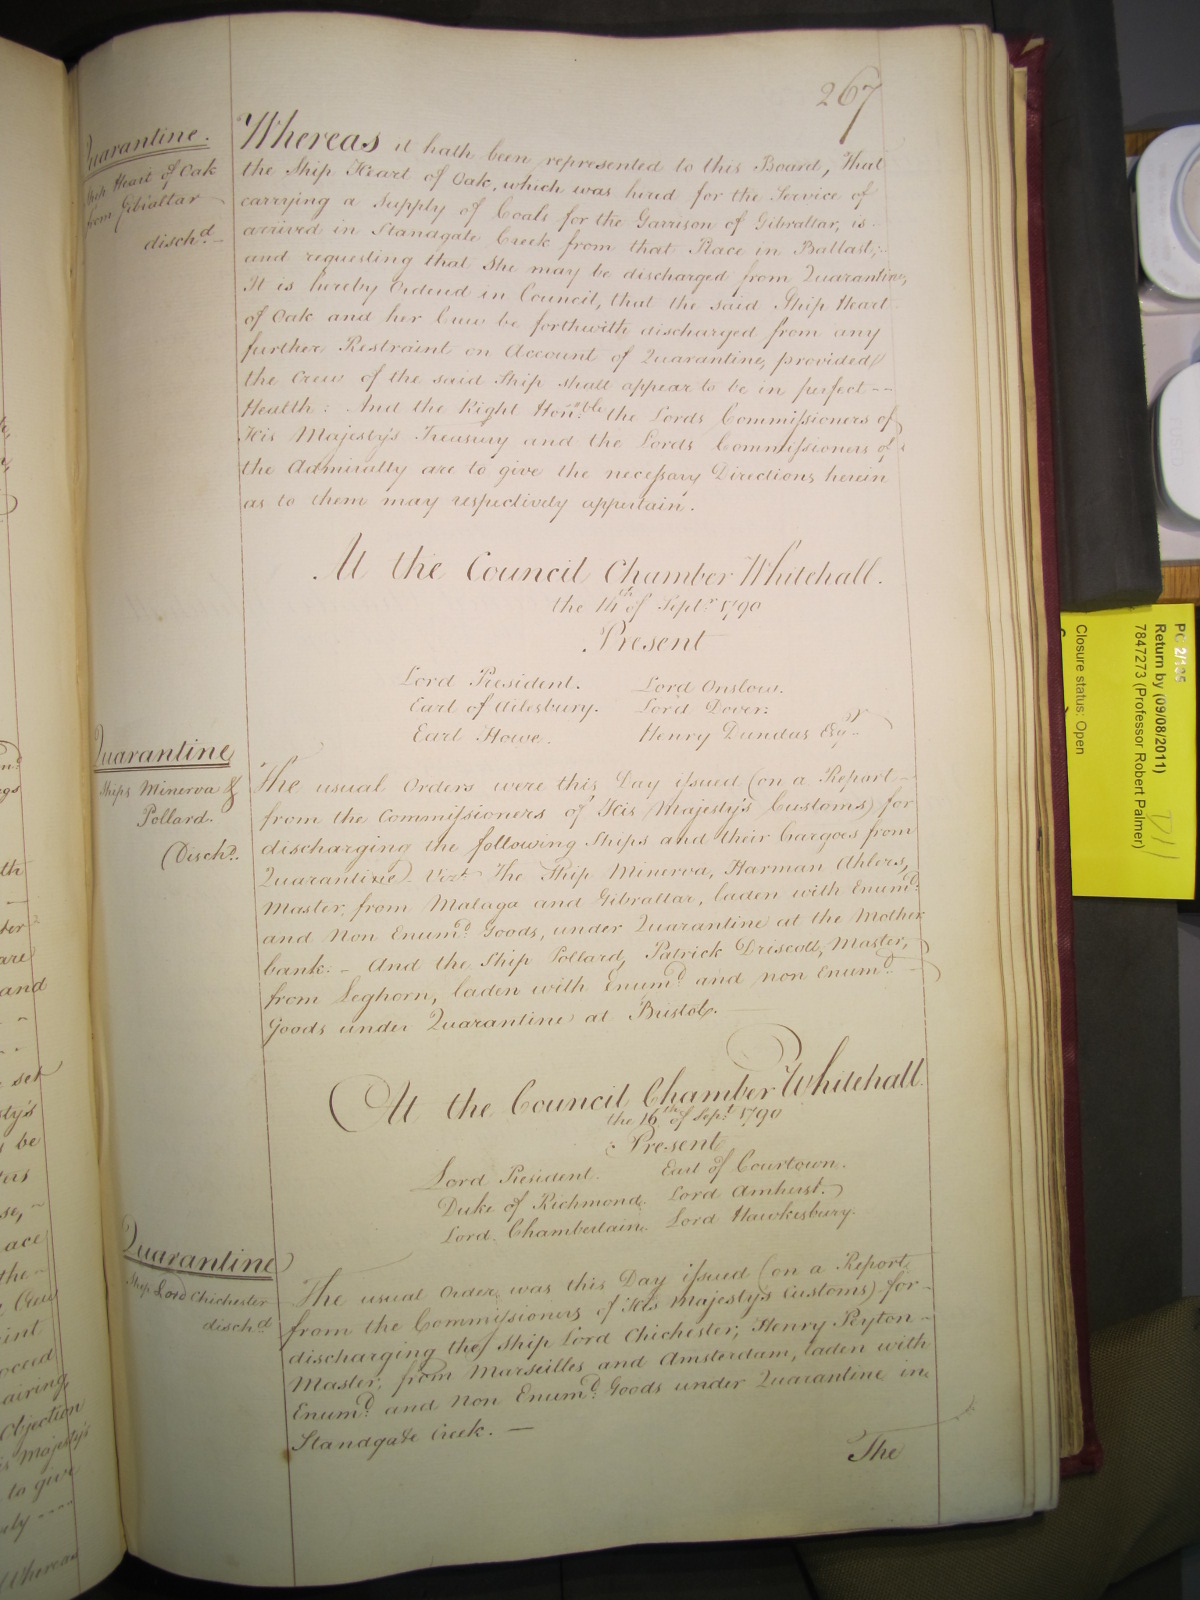 267
Quarantine.
Ship Heart of Oak
from Gibraltar
disch.d
Whereas it hath been represented to this Board, That
the Ship Heart of Oak, which was hired for the Service of
carrying a Supply of Coals for the Garrison of Gibraltar, is
arrived in Standgate Creek from that Place in Ballast;
and requesting that She may be discharged from Quarantine;
It is hereby Ordered in Council, that the said Ship Heart
of Oak and her Crew be forthwith discharged from any
further Restraint on Account of Quarantine, provided
the Crew of the said Ship shall appear to be in perfect --
Health: And the Right Hon.ble the Lords Commissioners of
His Majesty's Treasury and the Lords Commissioners of
the Admiralty are to give the necessary Directions herein
as to them may respectively appertain.
At the Council Chamber Whitehall.
the 14th of Sept.r 1790
Present
Lord President. Lord Onslow.
Earl of Ailesbury. Lord Dover.
Earl Howe. Henry Dundas Esq.r
Quarantine
Ships Minerva &
Pollard.
Disch.d
The usual Orders were this Day issued (on a Report
from the Commissioners of His Majesty's Customs) for
discharging the following Ships and their Cargoes from
Quarantine. Viz.t The Ship Minerva, Harman Ahlers,
Master, from Malaga and Gibraltar, laden with Enum.d
and Non Enum.d Goods, under Quarantine at the Mother
bank. - And the Ship Pollard, Patrick Driscoll, Master,
from Leghorn, laden with Enum.d and non Enum.d
Goods under Quarantine at Bristol.
At the Council Chamber Whitehall.
the 16th of Sept.r 1790
Present
Lord President. Earl of Courtown.
Duke of Richmond. Lord Amherst.
Lord Chamberlain. Lord Hawkesbury.
Quarantine
Ship Lord Chichester
disch.d
The usual Order was this Day issued (on a Report
from the Commissioners of His Majesty's Customs) for
discharging the Ship Lord Chichester, Henry Peyton
Master, from Marseilles and Amsterdam, laden with
Enum.d and Non Enum.d Goods under Quarantine in
Standgate Creek. —
The
PC 2/135
Return by (09/08/2011)
7847273 (Professor Robert Palmer)
Closure status: Open